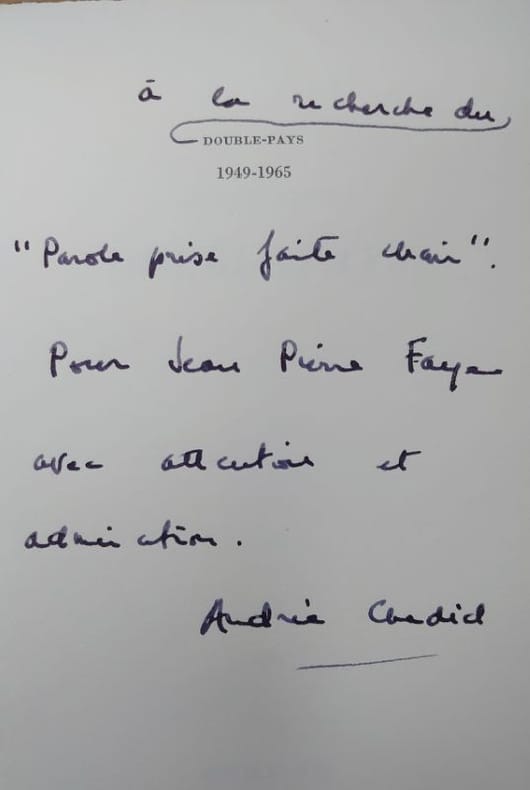 à la recherche du
DOUBLE-PAYS
1949-1965
"Parole prise faite chair".
Pour Jean Pierre Faye
avec attention et
admiration.
Andrée Chedid